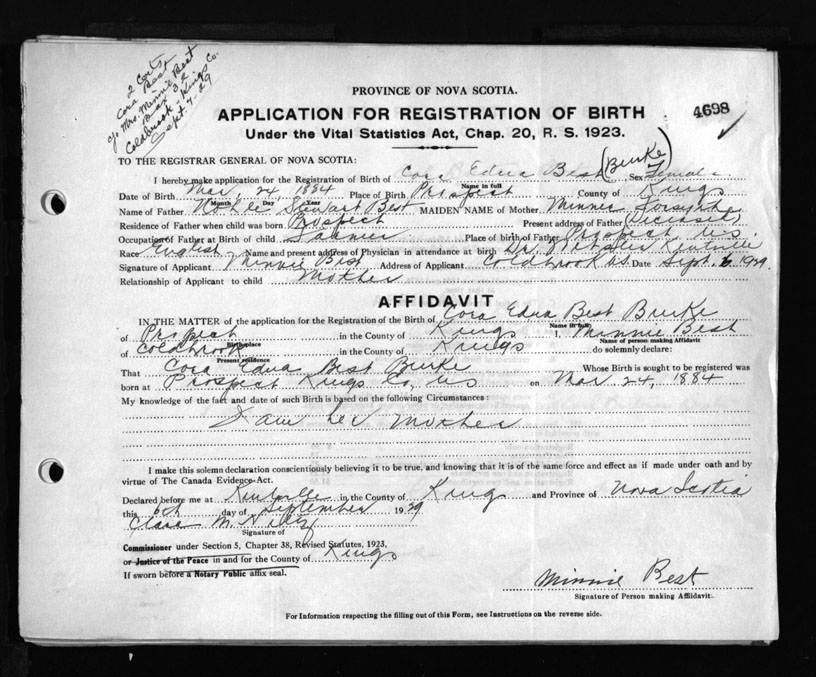 2 Certs
Cora Best
℅ Mrs. Minnie Best
Box 32
Coldbrook - Kings Co.
Sept. 7 - 29
PROVINCE OF NOVA SCOTIA.
4698
APPLICATION FOR REGISTRATION OF BIRTH
Under the Vital Statistics Act, Chap. 20, R. S. 1923.
TO THE REGISTRAR GENERAL OF NOVA SCOTIA:
I hereby make application for the Registration of Birth of Cora Edna Best (Burke) Sex Female
Name in full
Date of Birth Mar, 24, 1884 Place of Birth Prospect County of Kings
Month Day Year
Name of Father Stewart Best MAIDEN NAME of Mother Minnie Forsythe
Residence of Father when child was born Prospect Present address of Father (Deceased)
Occupation of Father at Birth of child Farmer Place of birth of Father Prospect N.S.
Race English Name and present address of Physician in attendance at birth Dr. Webster Kentville
Signature of Applicant Minnie Best Address of Applicant Coldbrook N.S. Date Sept. 6, 1929.
Relationship of Applicant to child Mother
AFFIDAVIT
IN THE MATTER of the application for the Registration of the Birth of Cora Edna Best Burke
Name in full
of Prospect in the County of Kings I, Minnie Best
Birthplace Name of person making Affidavit
of Coldbrook in the County of Kings do solemnly declare:
Present residence
That Cora Edna Best Burke Whose Birth is sought to be registered was
born at Prospect Kings Co, N S on Mar 24, 1884
My knowledge of the fact and date of such Birth is based on the following Circumstances:
I am her mother
I make this solemn declaration conscientiously believing it to be true, and knowing that it is of the same force and effect as if made under oath and by
virtue of The Canada Evidence-Act.
Declared before me at Kentville in the County of Kings and Province of Nova Scotia
this 6th day of September 1929
Clara M.
Signature of
Commissioner under Section 5, Chapter 38, Revised Statutes, 1923,
or Justice of the Peace in and for the County of Kings
If sworn before a Notary Public affix seal.
Minnie Best
Signature of Person making Affidavit.
For Information respecting the filling out of this Form, see Instructions on the reverse side.